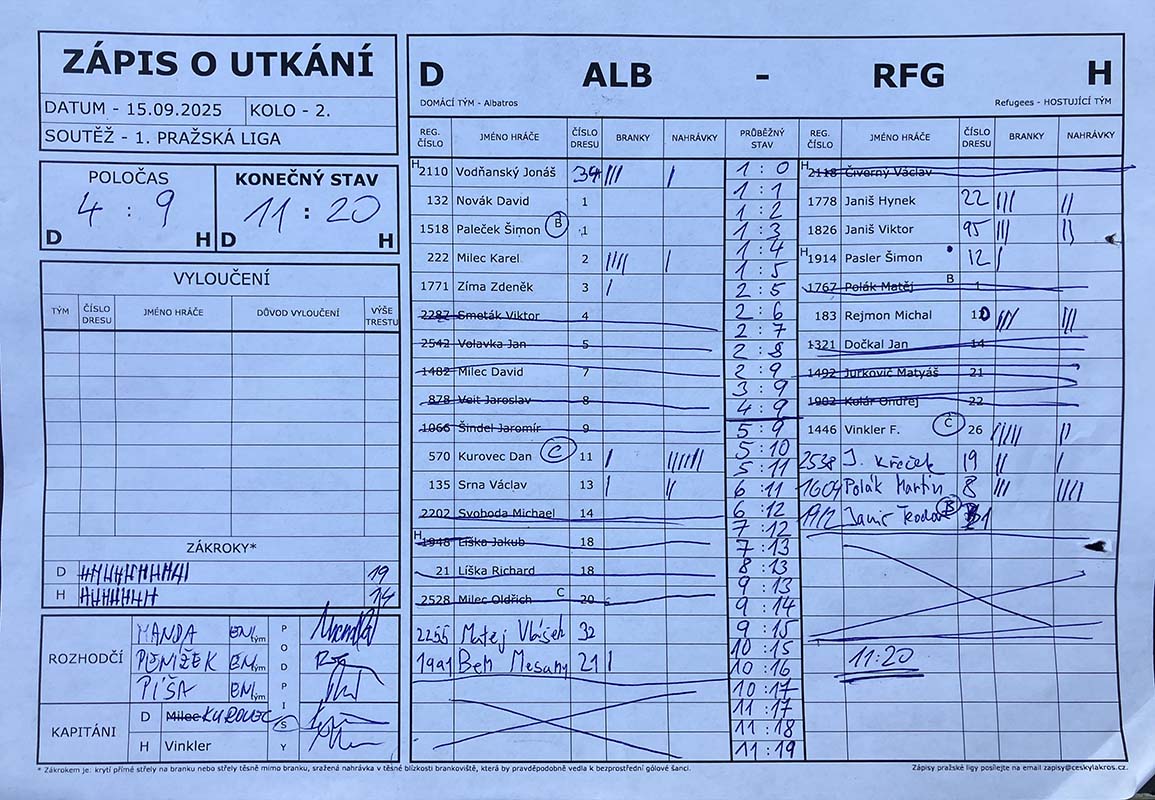 ZÁPIS O UTKÁNÍ
DATUM - 15.09.2025 KOLO - 2.
SOUTĚŽ - 1. PRAŽSKÁ LIGA
POLOČAS KONEČNÝ STAV
4 : 9 11 : 20
D H D H
VYLOUČENÍ
TÝM ČÍSLO DRESU JMÉNO HRÁČE DŮVOD VYLOUČENÍ VÝŠE TRESTU
ZÁKROKY*
D 19
H 14
ROZHODČÍ
MANDA ENL tým
PENÍŽEK ENL tým
PÍŠA ENL tým
PODPISY
KAPITÁNI
D Milec KUROVEC
H Vinkler
D ALB - RFG H
DOMÁCÍ TÝM - Albatros Refugees - HOSTUJÍCÍ TÝM
REG. ČÍSLO JMÉNO HRÁČE ČÍSLO DRESU BRANKY NAHRÁVKY PRŮBĚŽNÝ STAV REG. ČÍSLO JMÉNO HRÁČE ČÍSLO DRESU BRANKY NAHRÁVKY
H 2110 Vodňanský Jonáš 34 ||| |
132 Novák David 1
1518 Paleček Šimon B 1
222 Milec Karel 2 |||| |
1771 Zíma Zdeněk 3 |
2287 Smeták Viktor 4
2542 Volavka Jan 5
1482 Milec David 7
878 Veit Jaroslav 8
1066 Šindel Jaromír 9
570 Kurovec Dan C 11 | ||||||
135 Srna Václav 13 | ||
2202 Svoboda Michael 14
H 1948 Líška Jakub 18
21 Líška Richard 18
2528 Milec Oldřich C 20
2255 Matej Vlášek 32
1991 Ben Mesany 21 |
1 : 0
1 : 1
1 : 2
1 : 3
1 : 4
1 : 5
2 : 5
2 : 6
2 : 7
2 : 8
2 : 9
3 : 9
4 : 9
5 : 9
5 : 10
5 : 11
6 : 11
6 : 12
7 : 12
7 : 13
8 : 13
9 : 13
9 : 14
9 : 15
10 : 15
10 : 16
10 : 17
11 : 17
11 : 18
11 : 19
H 2118 Čiverny Václav
1778 Janiš Hynek 22 ||| ||
1826 Janiš Viktor 95 ||| ||
H 1914 Pasler Šimon 12 |
1767 Polák Matěj B 1
183 Rejmon Michal 10 ||| |||
1321 Dočkal Jan 14
1492 Jurkovič Matyáš 21
1902 Kolár Ondřej 22
1446 Vinkler F. C 26 ||||| ||
2538 J. Křeček 19 || |
1604 Polák Martin 8 ||| ||||
1912 Janiš Teodor B 1
11:20
* Zákrokem je: krytí přímé střely na branku nebo střely těsně mimo branku, sražená nahrávka v těsné blízkosti brankoviště, která by pravděpodobně vedla k bezprostřední gólové šanci.
Zápisy pražské ligy posílejte na email zapisy@ceskylakros.cz.